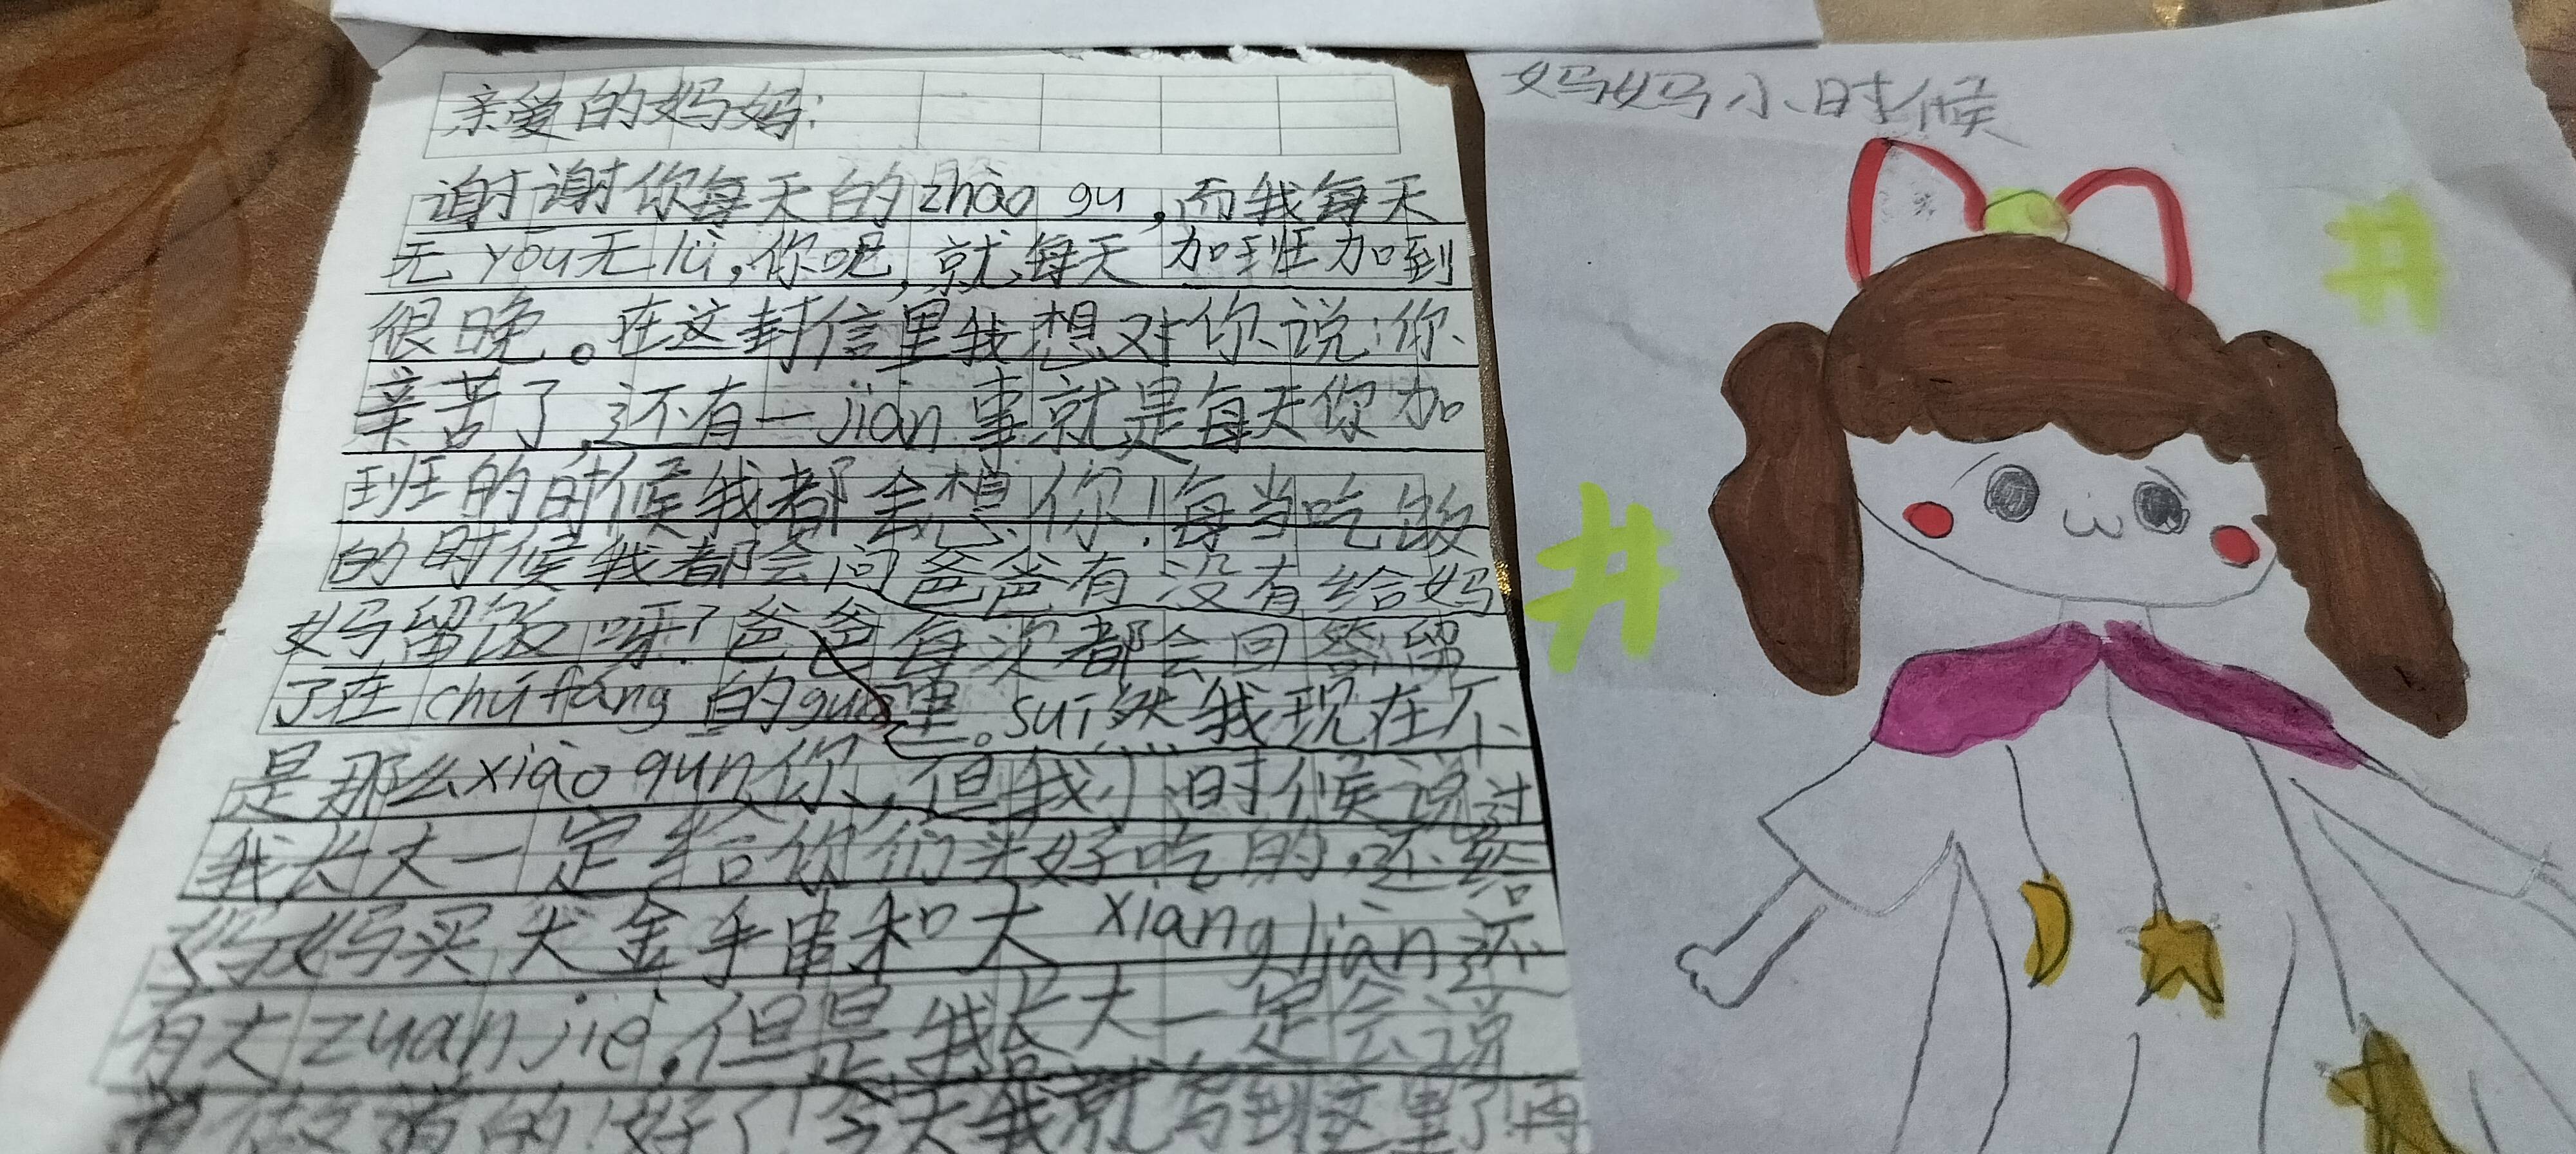 亲爱的妈妈:
谢谢你每天的zhào gu,而我每天
无yōu无lǜ,你呢,就每天加班加到
很晚。在这封信里我想对你说:你
辛苦了,还有一jiàn事就是每天你加
班的时候我都会想你!每当吃饭
的时候我都会问爸爸有没有给妈
妈留饭呀?爸爸每次都会回答留
了在chú fáng的guō里。suī然我现在不
是那么xiào qun你,但我小时候说过
我长大一定给你们买好吃的,还给
妈妈买大金手串和大xiàng liàn还
有大zuàn jiè,但是我长大一定会说
到做到的!好了!今天我就写到这里了!再
妈妈小时候